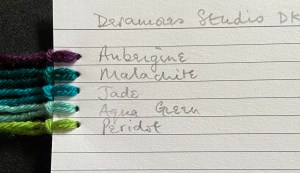 Deramores Studio DK
Aubergine
Malachite
Jade
Aqua Green
Peridot